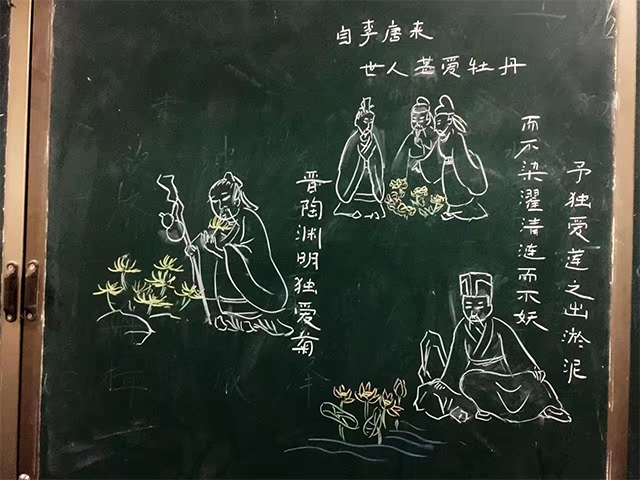 晋陶渊明独爱菊
自李唐来
世人甚爱牡丹
予独爱莲之出淤泥
而不染濯清涟而不妖